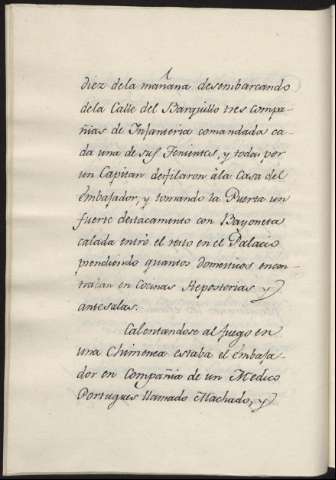 diez dela mañana desembarcando
dela Calle del Barquillo tres Compa-
ñias de Infanteria comandada ca-
da una de sus Tenientes, y todas por
un Capitan desfilaron à la Casa del
Embajador, y tomando la Puerta un
fuerte destacamento con Bayoneta
calada entrò el resto en el Palacio
prendiendo quantos domesticos encon-
traban en Cocinas Reposterias y
antesalas.
Calentandose al fuego en
una Chimenea estaba el embaja-
dor en Compañia de un Medico
Portugues llamado Machado, y